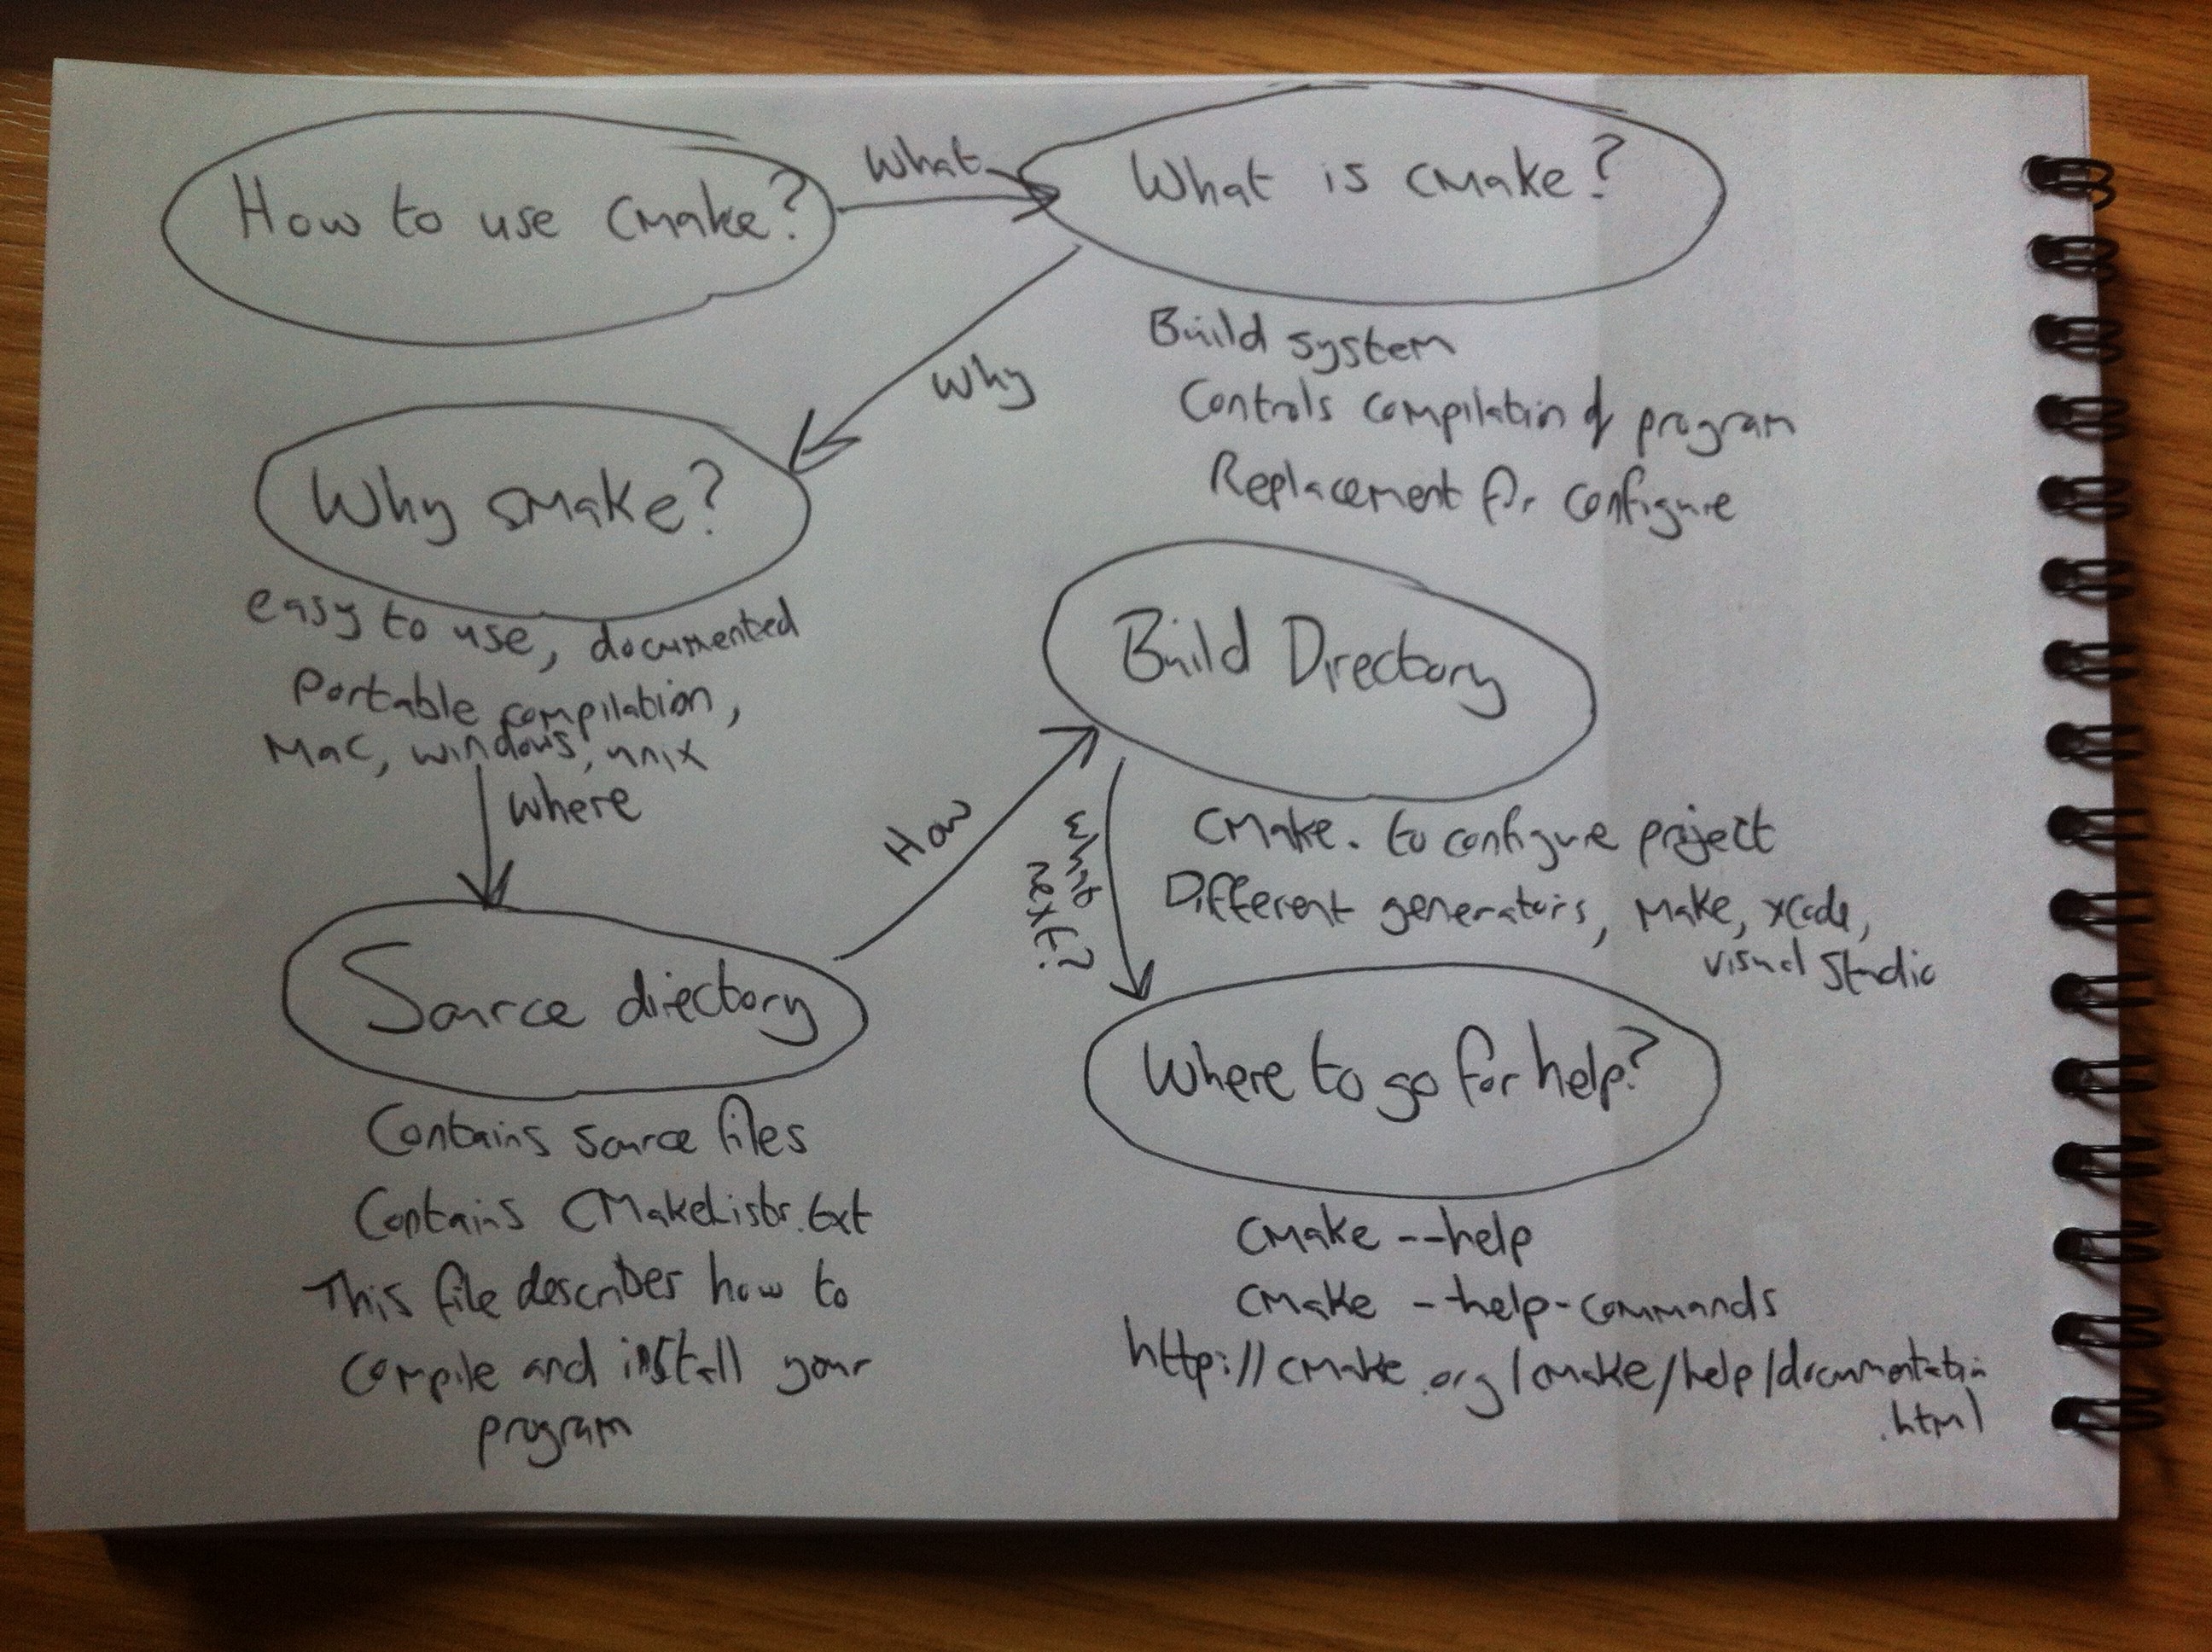 How to use CMake?
What
What is CMake?
Build system
Controls compilation of program
Replacement for configure
Why
Why CMake?
easy to use, documented
Portable compilation,
Mac, windows, unix
where
Source directory
Contains source files
Contains CMakeLists.txt
This file describes how to
compile and install your
program
How
Build Directory
CMake . to configure project
Different generators, Make, Xcode,
visual Studio
what
next?
Where to go for help?
CMake --help
CMake --help-commands
http://cmake.org/cmake/help/documentation
.html